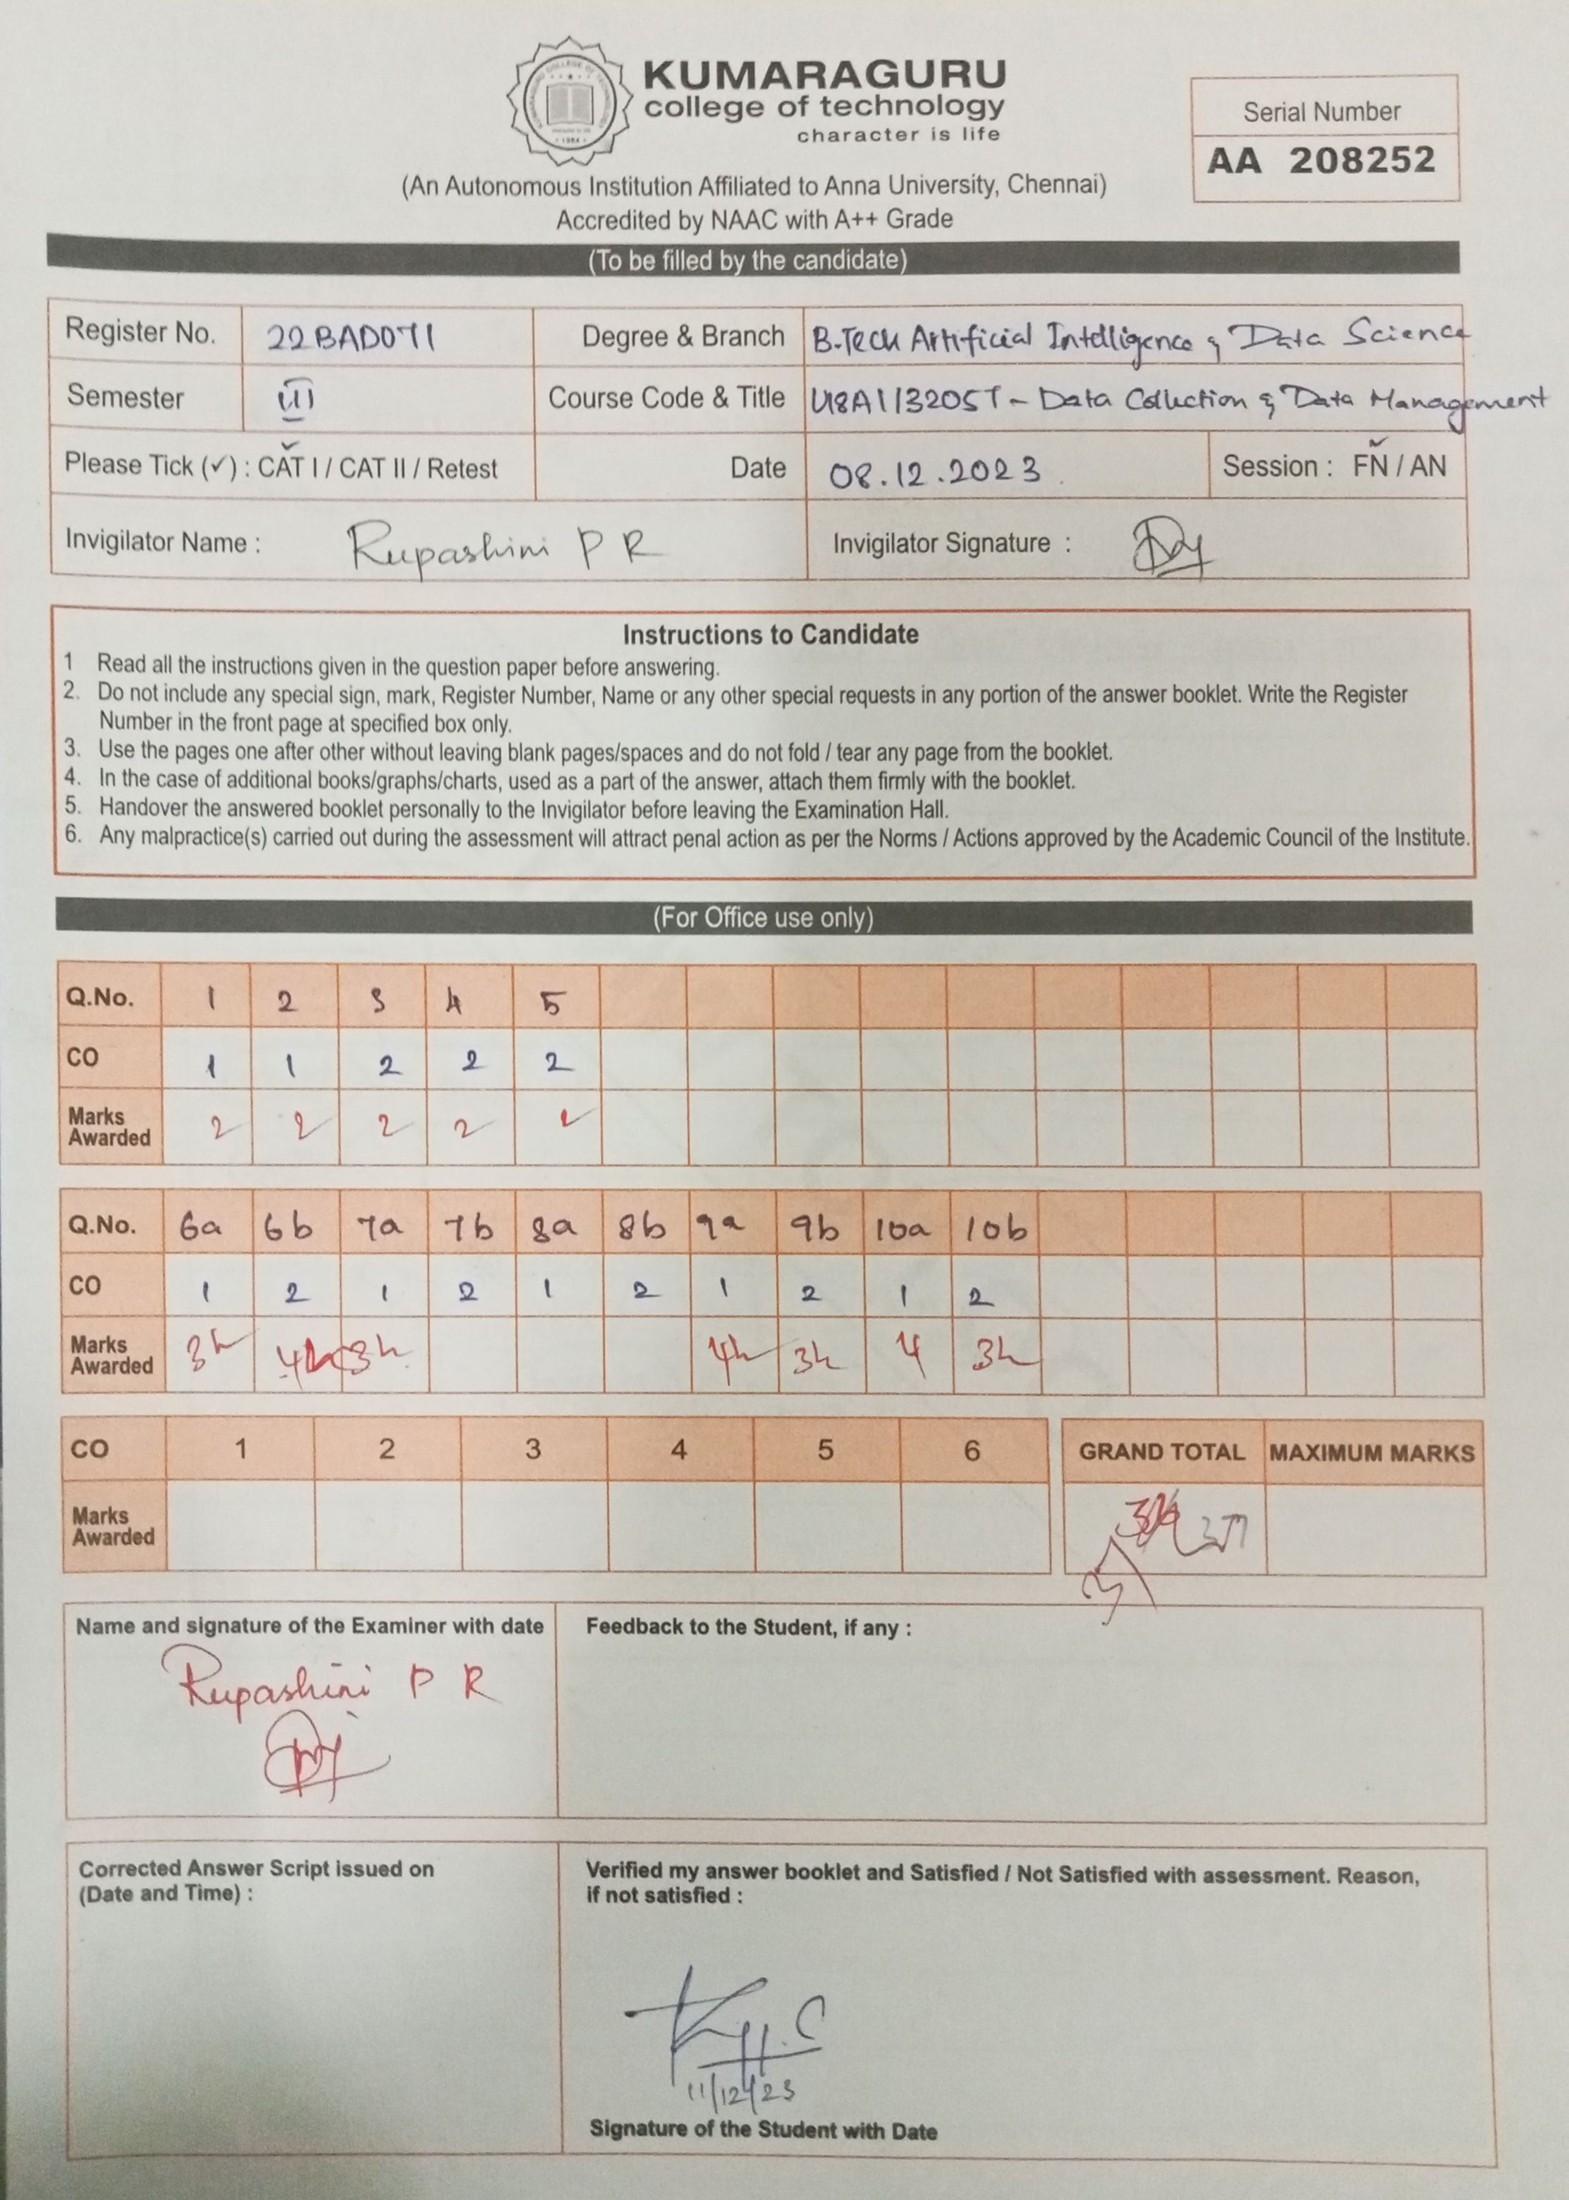 KUMARAGURU
college of technology
character is life
Serial Number
AA 208252
(An Autonomous Institution Affiliated to Anna University, Chennai)
Accredited by NAAC with A++ Grade
(To be filled by the candidate)
Register No. 22BAD071 Degree & Branch B.Tech Artificial Intelligence & Data Science
Semester III Course Code & Title U18AII3205T - Data Collection & Data Management
Please Tick (✓) : CAT I / CAT II / Retest Date 08.12.2023 Session : FN / AN
Invigilator Name : Rupashini P R Invigilator Signature :
Instructions to Candidate
1 Read all the instructions given in the question paper before answering.
2. Do not include any special sign, mark, Register Number, Name or any other special requests in any portion of the answer booklet. Write the Register
Number in the front page at specified box only.
3. Use the pages one after other without leaving blank pages/spaces and do not fold / tear any page from the booklet.
4. In the case of additional books/graphs/charts, used as a part of the answer, attach them firmly with the booklet.
5. Handover the answered booklet personally to the Invigilator before leaving the Examination Hall.
6. Any malpractice(s) carried out during the assessment will attract penal action as per the Norms / Actions approved by the Academic Council of the Institute.
(For Office use only)
Q.No. 1 2 3 4 5
CO 1 1 2 2 2
Marks Awarded 2 2 2 2
Q.No. 6a 6b 7a 7b 8a 8b 9a 9b 10a 10b
CO 1 2 1 2 1 2 1 2 1 2
Marks Awarded 4
CO 1 2 3 4 5 6 GRAND TOTAL MAXIMUM MARKS
Marks Awarded
Name and signature of the Examiner with date Feedback to the Student, if any :
Rupashini P R
Corrected Answer Script issued on
(Date and Time) :
Verified my answer booklet and Satisfied / Not Satisfied with assessment. Reason,
if not satisfied :
11/12/23
Signature of the Student with Date